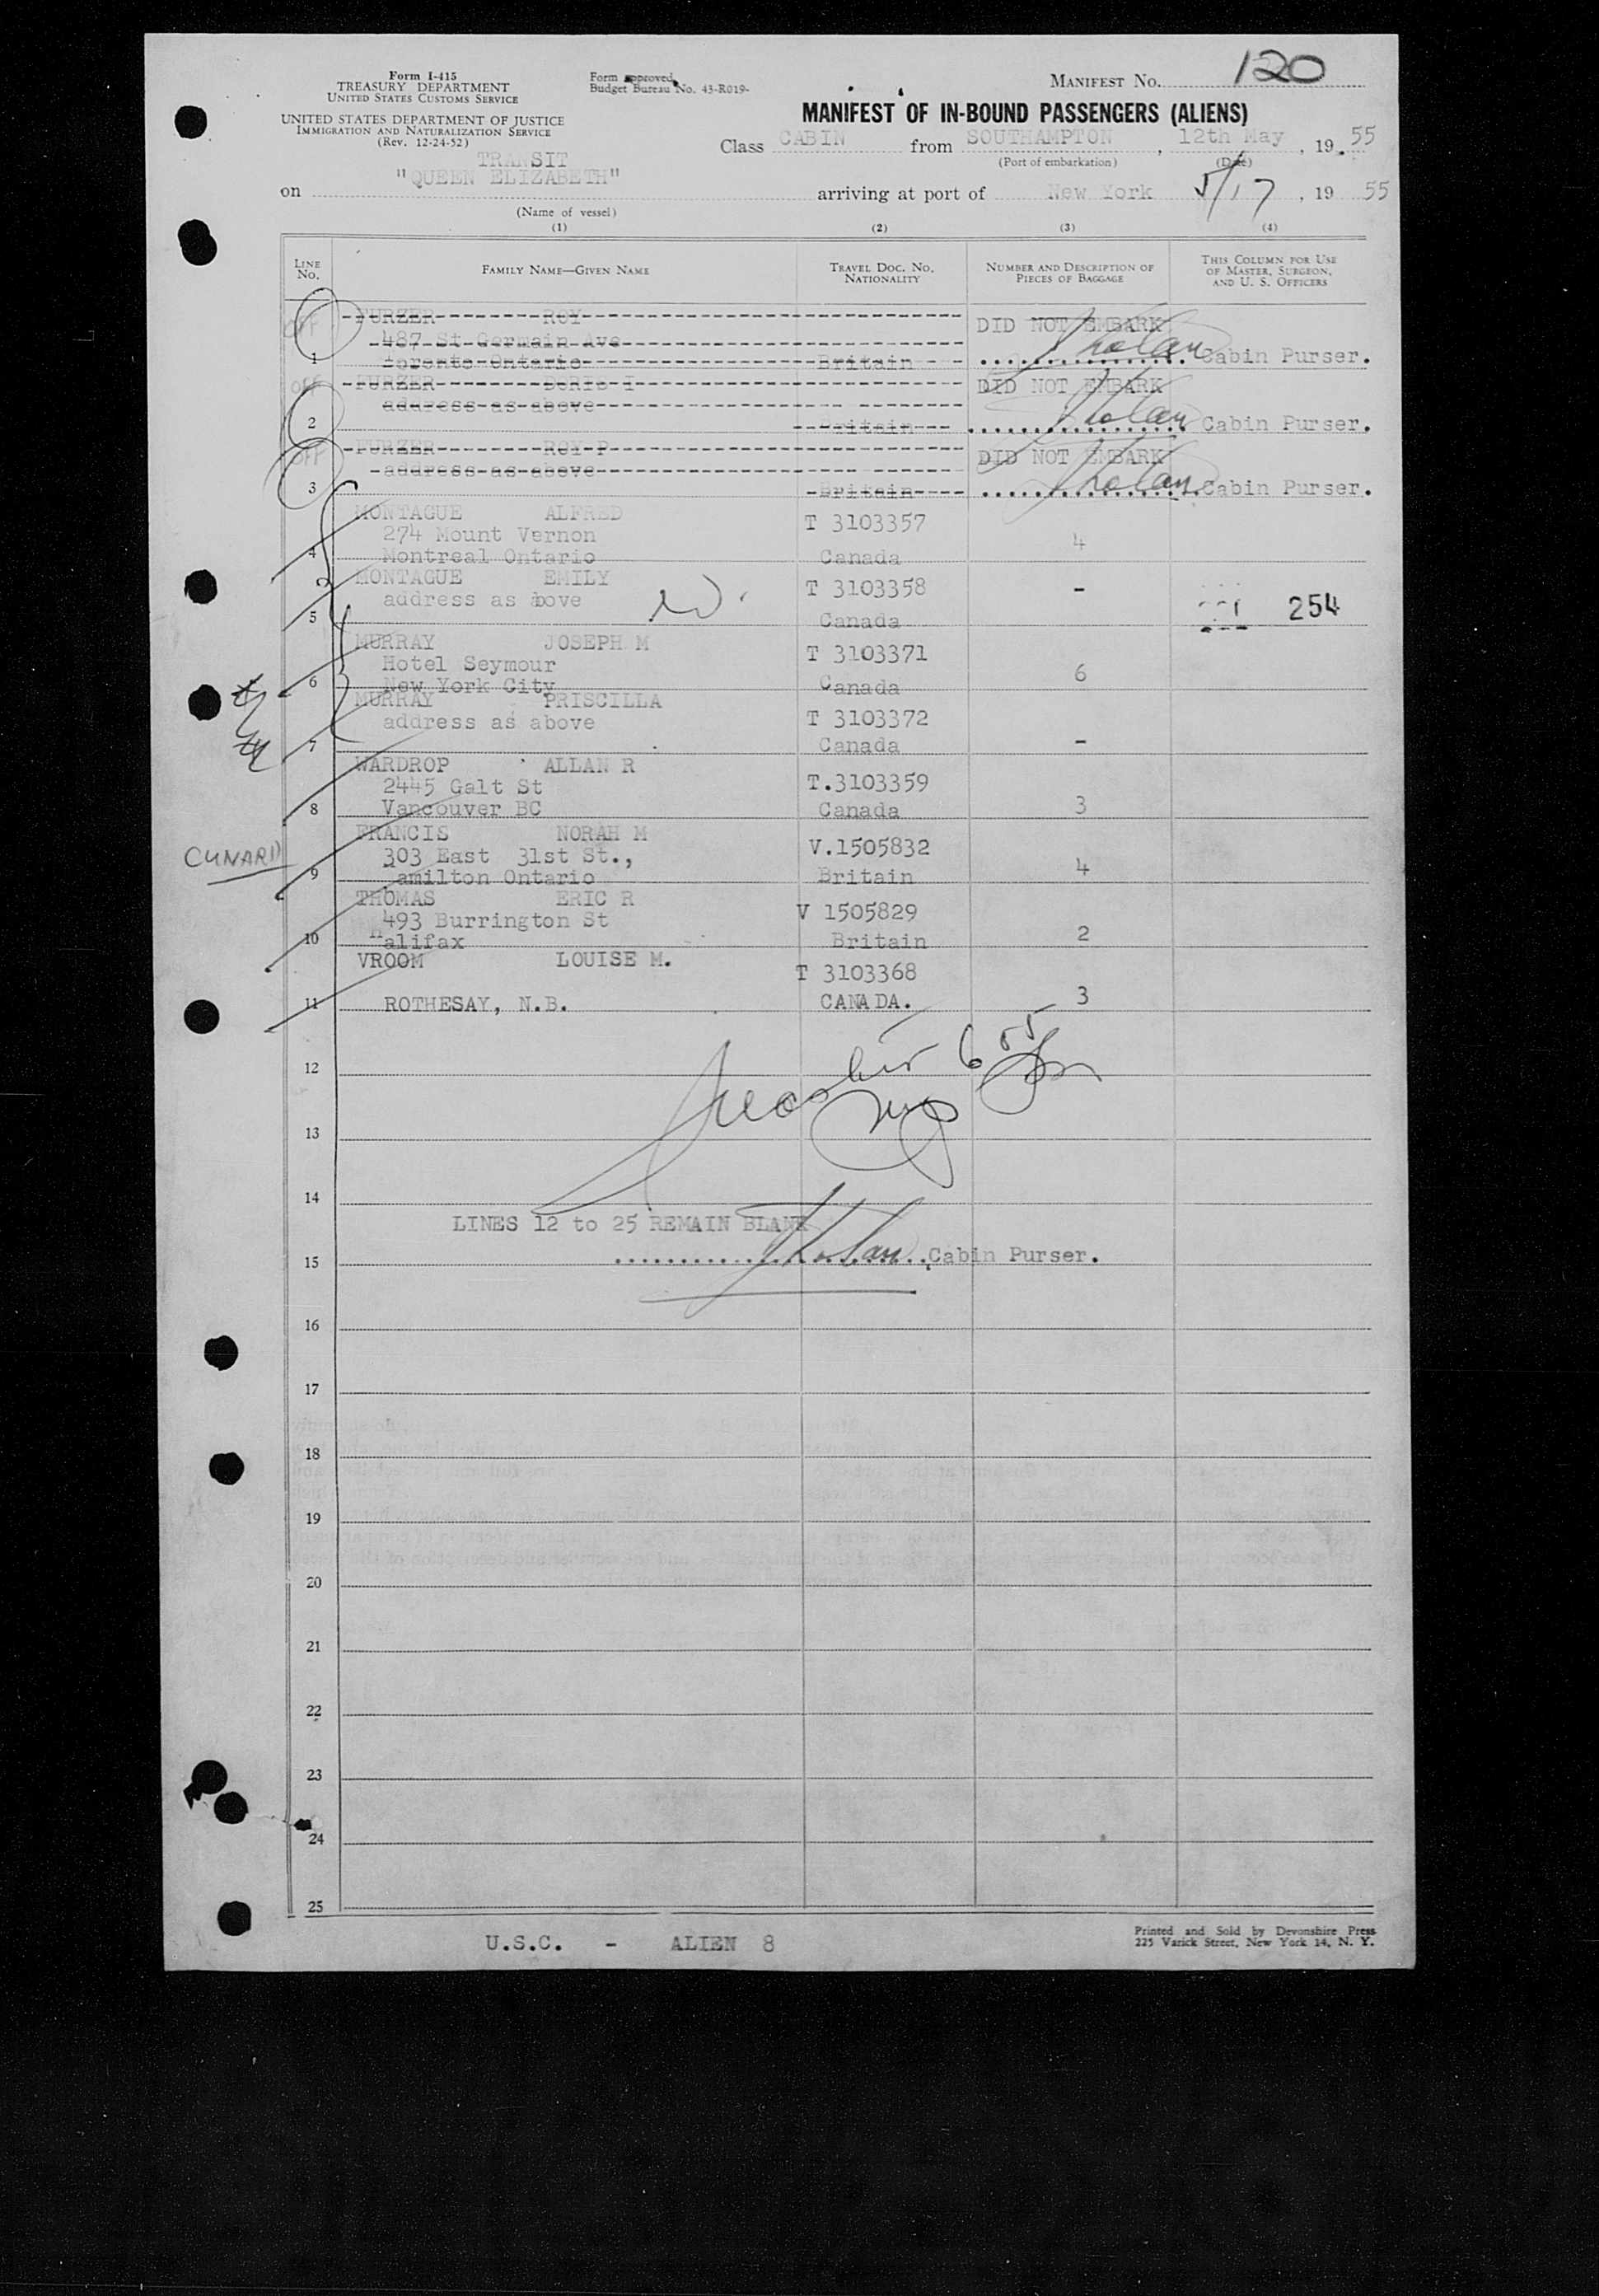 Form I-415
TREASURY DEPARTMENT
UNITED STATES CUSTOMS SERVICE
UNITED STATES DEPARTMENT OF JUSTICE
IMMIGRATION AND NATURALIZATION SERVICE
(Rev. 12-24-52)
Form approved.
Budget Bureau No. 43-R019-
MANIFEST NO. 120
MANIFEST OF IN-BOUND PASSENGERS (ALIENS)
Class CABIN from SOUTHAMPTON, 12th May, 19.55
(Port of embarkation) (Date)
TRANSIT
on "QUEEN ELIZABETH" arriving at port of New York 5/17, 19 55
(Name of vessel)
(1) (2) (3) (4)
LINE NO. FAMILY NAME—GIVEN NAME TRAVEL DOC. NO. NATIONALITY NUMBER AND DESCRIPTION OF PIECES OF BAGGAGE THIS COLUMN FOR USE OF MASTER, SURGEON, AND U. S. OFFICERS
OFF FURZER ROY DID NOT EMBARK
487 St Germain Ave
1 Toronto Ontario Britain Cabin Purser.
OFF FURZER DORIS I DID NOT EMBARK
address as above
2 Britain Cabin Purser.
OFF FURZER ROY P DID NOT EMBARK
address as above
3 Britain Cabin Purser.
MONTAGUE ALFRED T 3103357
274 Mount Vernon
4 Montreal Ontario Canada 4
MONTAGUE EMILY T 3103358 -
address as above 254
5 Canada
MURRAY JOSEPH M T 3103371
Hotel Seymour
6 New York City Canada 6
MURRAY PRISCILLA T 3103372
address as above
7 Canada -
WARDROP ALLAN R T.3103359
2445 Galt St
8 Vancouver BC Canada 3
CUNARD FRANCIS NORAH M V.1505832
303 East 31st St.,
9 amilton Ontario Britain 4
THOMAS ERIC R V 1505829
493 Burrington St
10 Halifax Britain 2
VROOM LOUISE M. T 3103368
11 ROTHESAY, N.B. CANADA. 3
12
13
14
LINES 12 to 25 REMAIN BLANK
15 Cabin Purser.
16
17
18
19
20
21
22
23
24
25
U.S.C. - ALIEN 8
Printed and Sold by Devonshire Press
225 Varick Street, New York 14, N. Y.